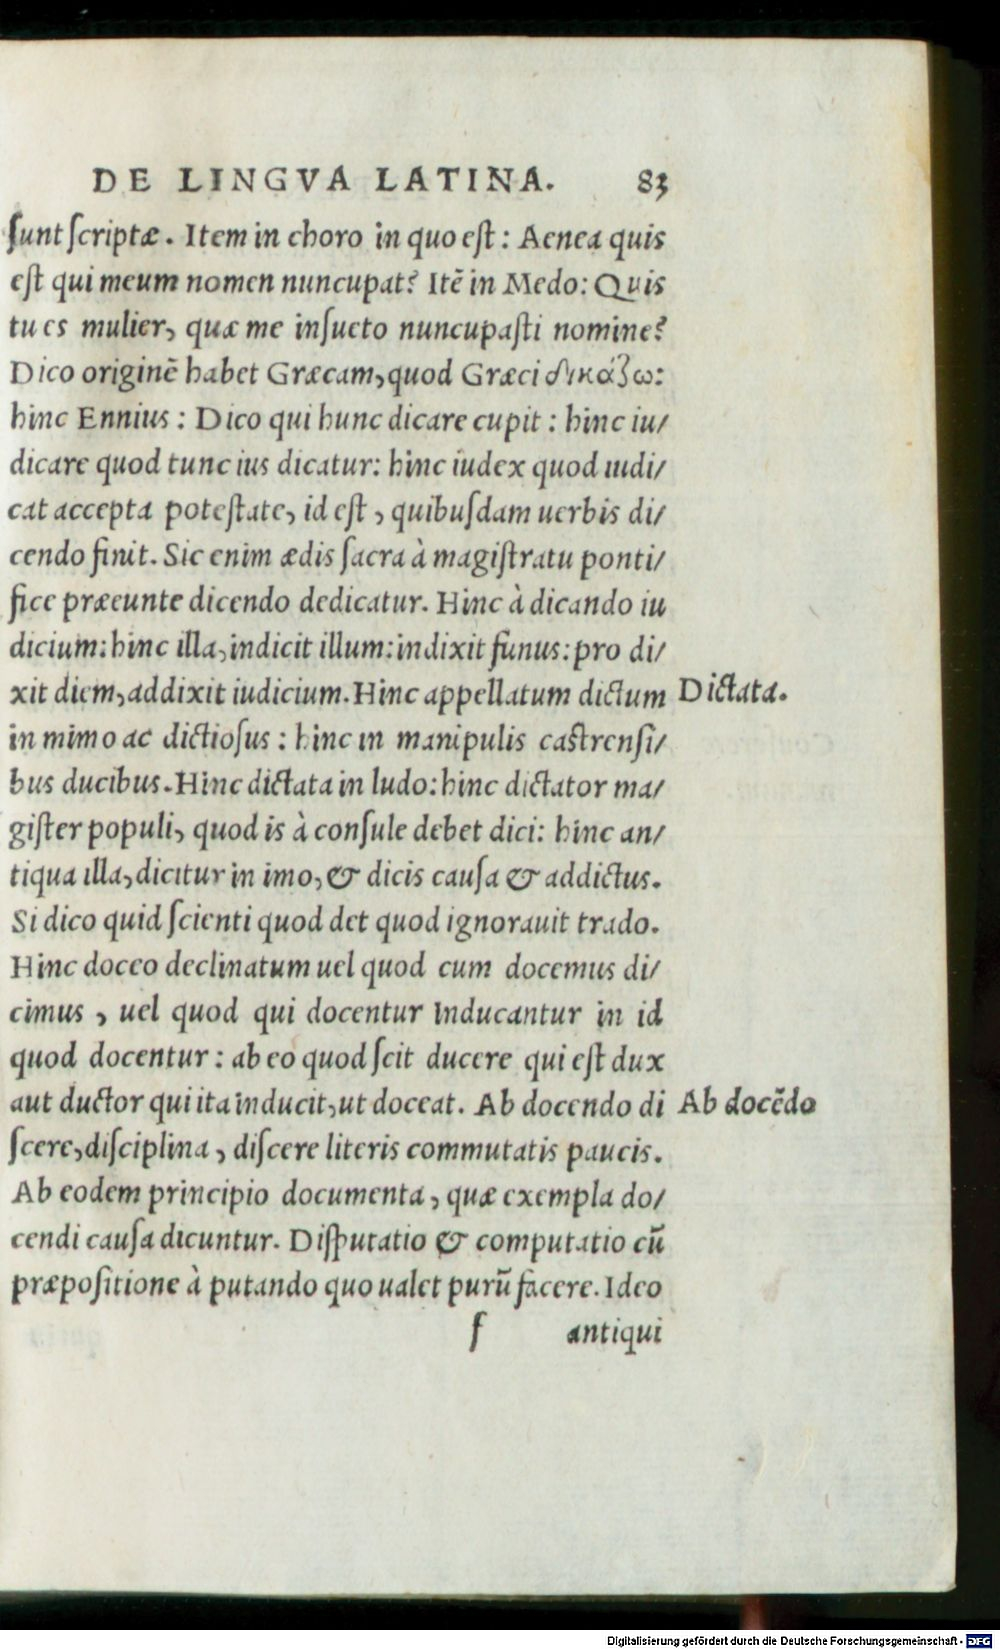 DE LINGVA LATINA. 83
ſunt ſcriptæ. Item in choro in quo eſt: Aenea quis
eſt qui meum nomen nuncupat? Itē in Medo: Quis
tu es mulier, quæ me inſueto nuncupaſti nomine?
Dico originē habet Græcam, quod Græci δικάζω:
hinc Ennius: Dico qui hunc dicare cupit: hinc iu/
dicare quod tunc ius dicatur: hinc iudex quod iudi/
cat accepta poteſtate, id eſt, quibuſdam uerbis di/
cendo finit. Sic enim ædis ſacra à magiſtratu ponti/
fice præeunte dicendo dedicatur. Hinc à dicando iu
dicium: hinc illa, indicit illum: indixit funus: pro di/
xit diem, addixit iudicium. Hinc appellatum dictum
Dictata.
in mimo ac dictioſus: hinc in manipulis caſtrenſi/
bus ducibus. Hinc dictata in ludo: hinc dictator ma/
giſter populi, quod is à conſule debet dici: hinc an/
tiqua illa, dicitur in imo, & dicis cauſa & addictus.
Si dico quid ſcienti quod det quod ignorauit trado.
Hinc doceo declinatum uel quod cum docemus di/
cimus, uel quod qui docentur inducantur in id
quod docentur: ab eo quod ſcit ducere qui eſt dux
aut ductor qui ita inducit, ut doceat. Ab docendo di
Ab docēdo
ſcere, diſciplina, diſcere literis commutatis paucis.
Ab eodem principio documenta, quæ exempla do/
cendi cauſa dicuntur. Diſputatio & computatio cū
præpoſitione à putando quo ualet purū facere. Ideo
f antiqui
Digitalisierung gefördert durch die Deutsche Forschungsgemeinschaft - DFG